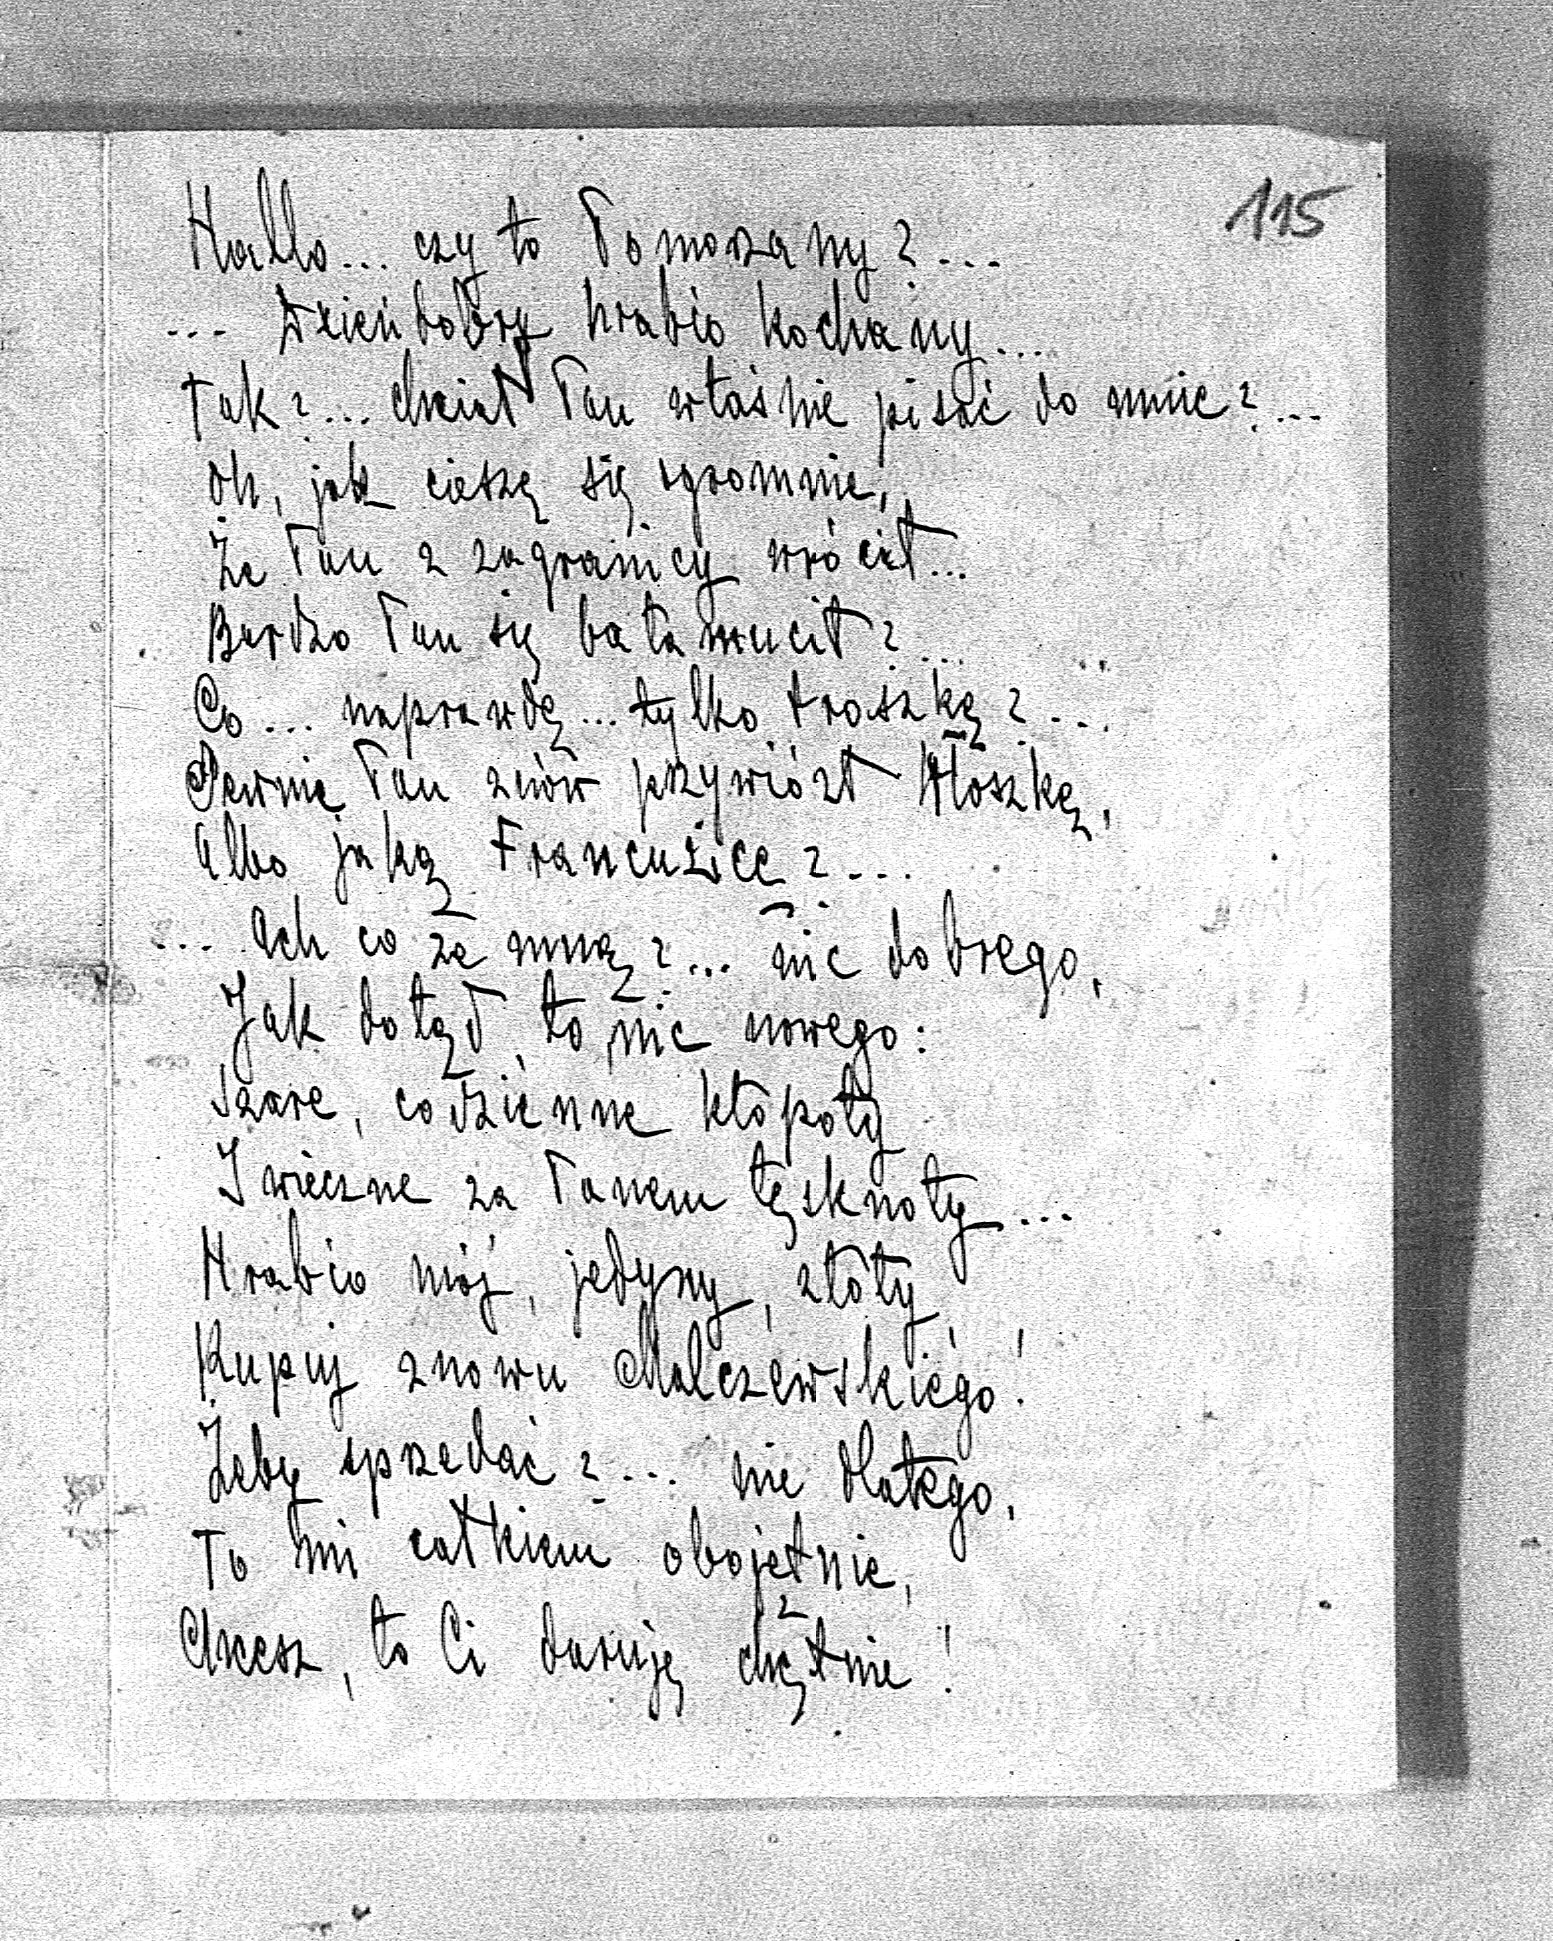 115
Hallo... czy to Pomorzany?...
... Dzień dobry hrabio kochany...
Tak?... chciał Pan właśnie pisać do mnie?...
Oh, jak cieszę się ogromnie,
Że Pan z zagranicy wrócił...
Bardzo Pan się bałamucił?...
Co... naprawdę... tylko troszkę?...
Pewnie Pan znów przywiózł Włoszkę,
Albo jaką Francuzicę?...
... Ach co ze mną?... nic dobrego,
Jak dotąd, to nic nowego:
Szare, codzienne kłopoty
I wieczne za Panem tęsknoty...
Hrabio mój, jedyny, złoty
Kupuj znowu Malczewskiego!
Żeby sprzedać?... nie dlatego,
To mi całkiem obojętnie,
Chcesz, to Ci daruję chętnie!